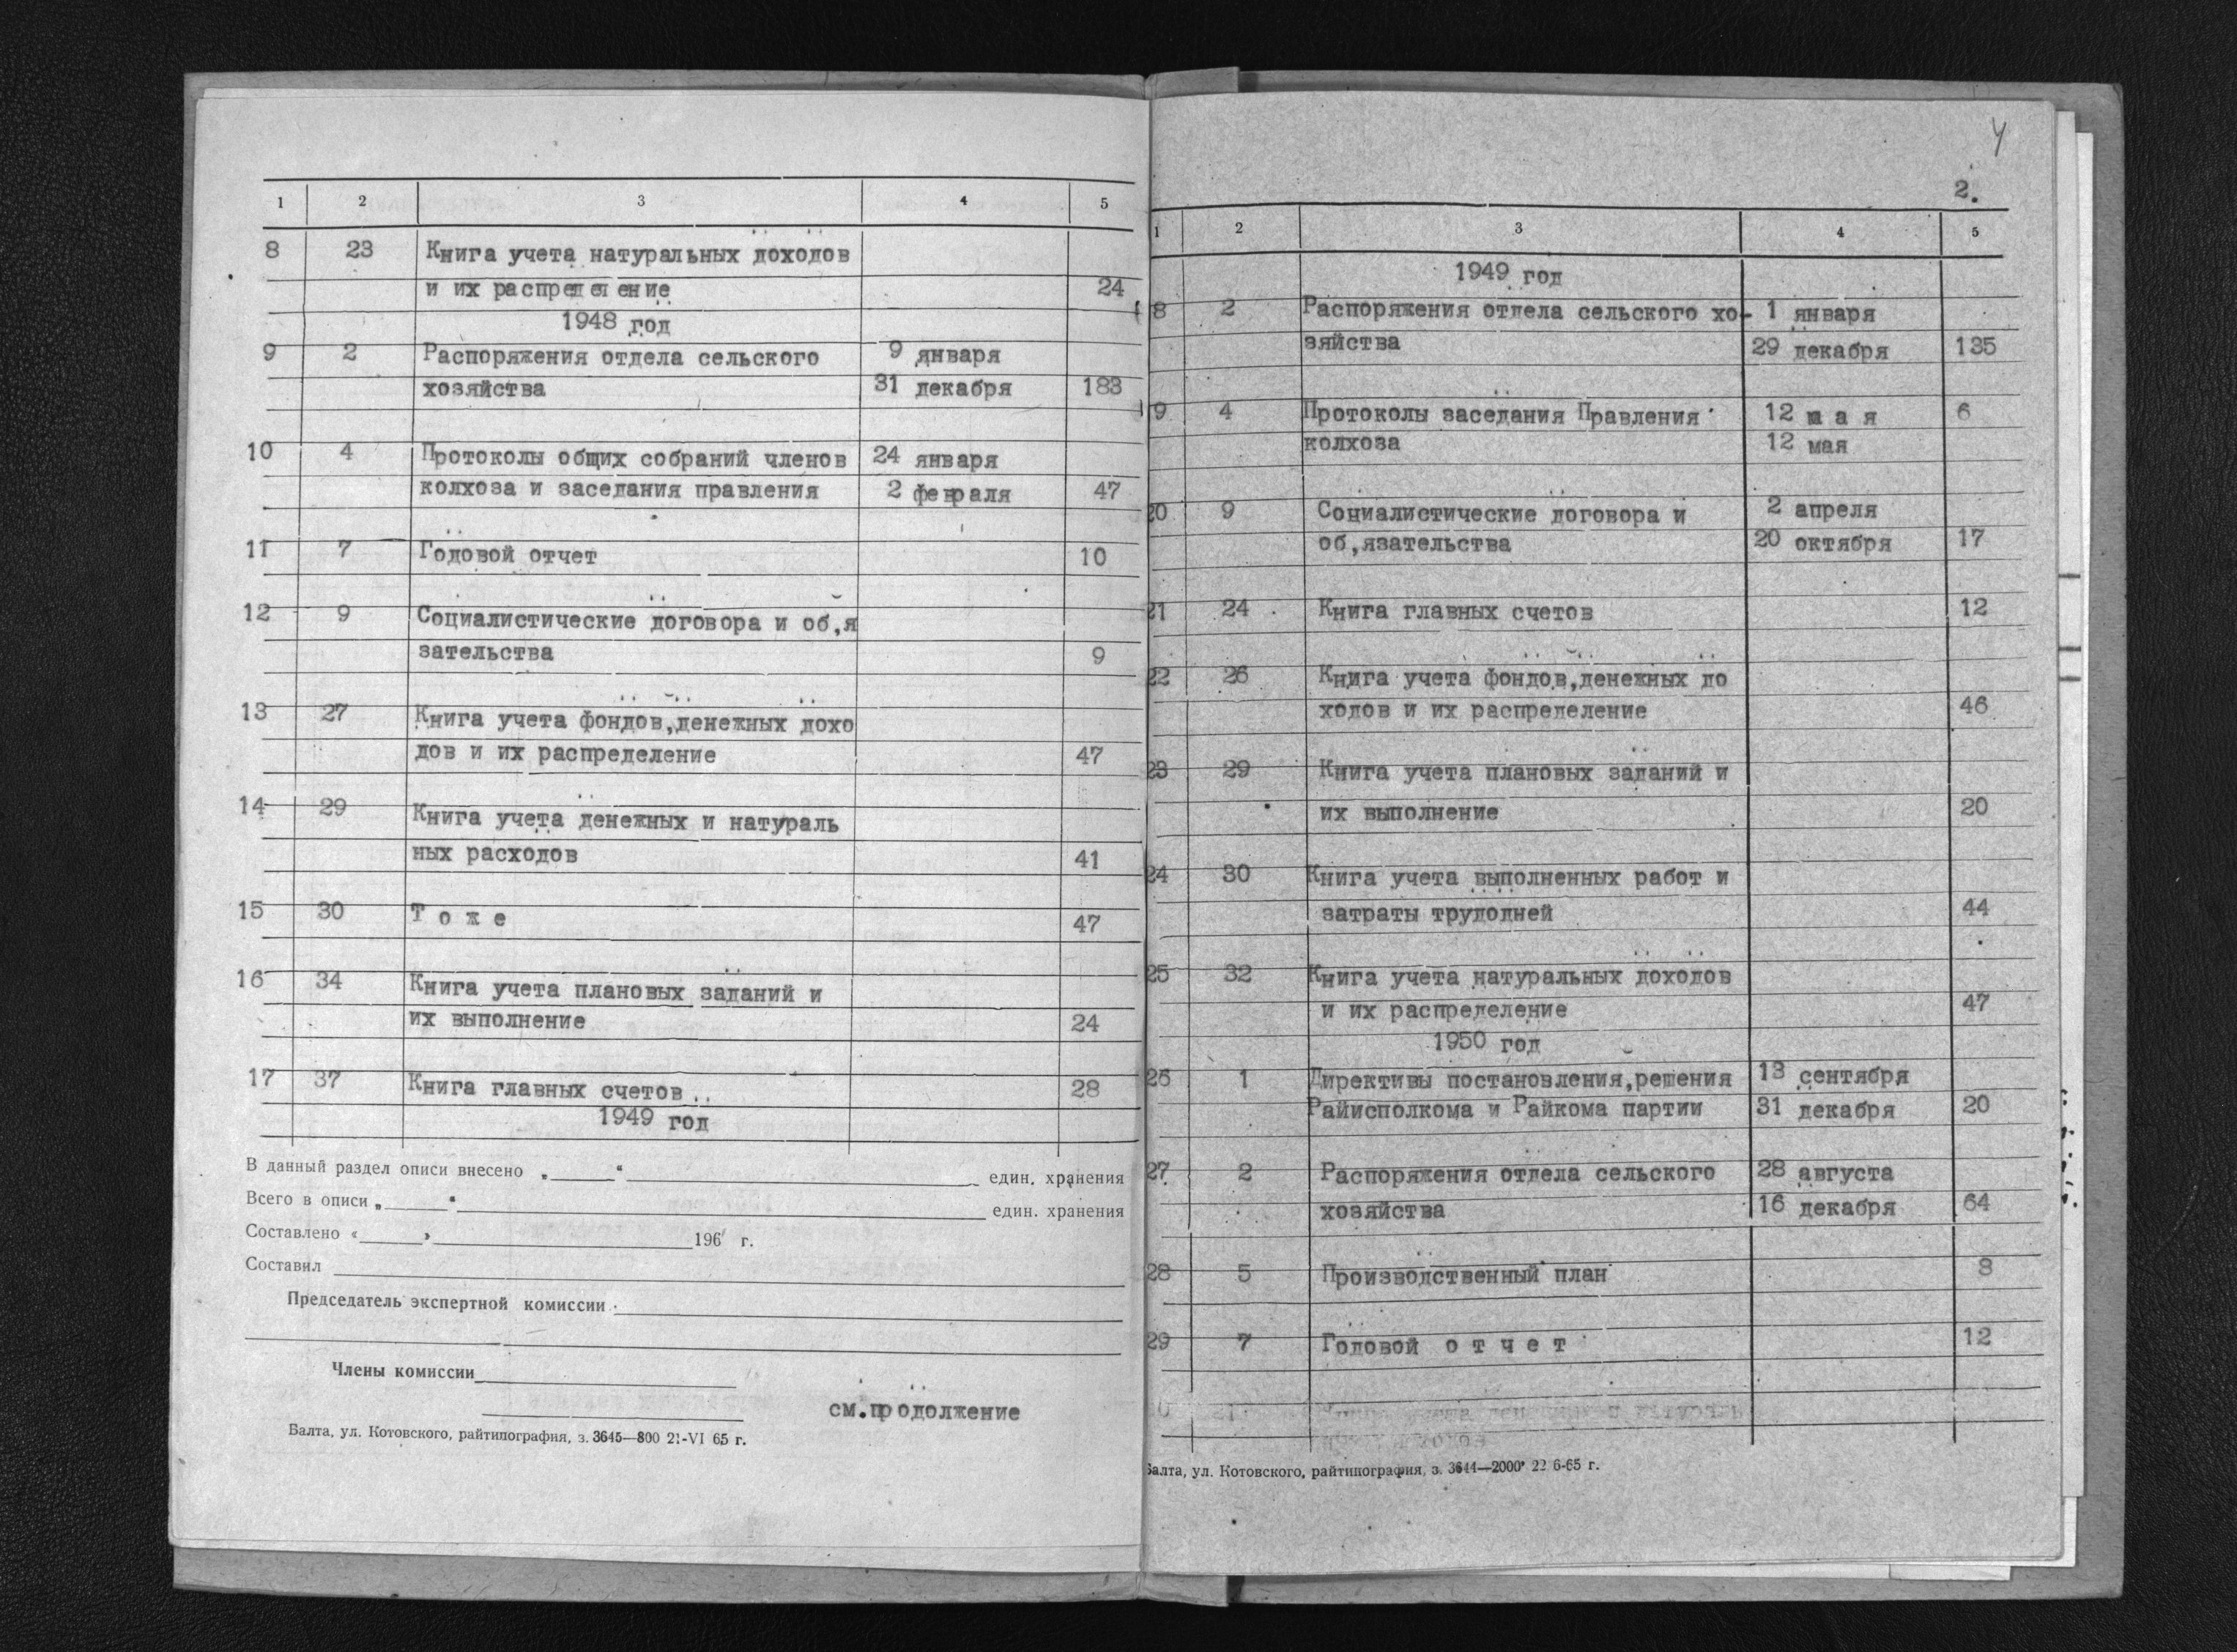 1 2 3 4 5
8 23 Книга учета натуральных доходов
и их распределение 24
1948 год
9 2 Распоряжения отдела сельского 9 января
хозяйства 31 декабря 183
10 4 Протоколы общих собраний членов 24 января
колхоза и заседания правления 2 февраля 47
11 7 Годовой отчет 10
12 9 Социалистические договора и об,я
зательства 9
13 27 Книга учета фондов,денежных дохо
дов и их распределение 47
14 29 Книга учета денежных и натураль
ных расходов 41
15 30 Т о ж е 47
16 34 Книга учета плановых заданий и
их выполнение 24
17 37 Книга главных счетов 28
1949 год
В данный раздел описи внесено „ “ един. хранения
Всего в описи „ “ един. хранения
Составлено « » 196 г.
Составил
Председатель экспертной комиссии
Члены комиссии
см.продолжение
Балта, ул. Котовского, райтипография, з. 3645—800 21-VI 65 г.
4
2.
1 2 3 4 5
1949 год
8 2 Распоряжения отдела сельского хо- 1 января
зяйства 29 декабря 135
9 4 Протоколы заседания Правления 12 м а я 6
колхоза 12 мая
20 9 Социалистические договора и 2 апреля
об,язательства 20 октября 17
21 24 Книга главных счетов 12
22 26 Книга учета фондов,денежных до
ходов и их распределение 46
23 29 Книга учета плановых заданий и
их выполнение 20
24 30 Книга учета выполненных работ и
затраты трудодней 44
25 32 Книга учета натуральных доходов
и их распределение 47
1950 год
26 1 Директивы постановления,решения 13 сентября
Райисполкома и Райкома партии 31 декабря 20
27 2 Распоряжения отдела сельского 28 августа
хозяйства 16 декабря 64
28 5 Производственный план 8
29 7 Годовой о т ч е т 12
Балта, ул. Котовского, райтипография, з. 3644—2000 22 6-65 г.